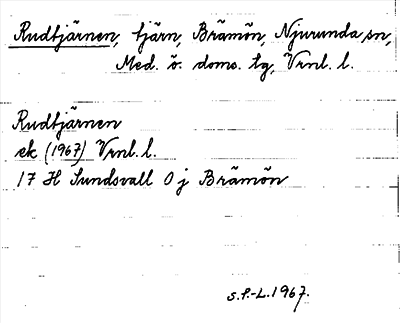 Rudtjärnen, tjärn, Brämön, Njurunda sn,
Med. ö. doms. tg, Vrnl. l.
Rudtjärnen
ek (1967) Vrnl. l.
17 H Sundsvall 0 j Brämön
S.P.-L. 1967.